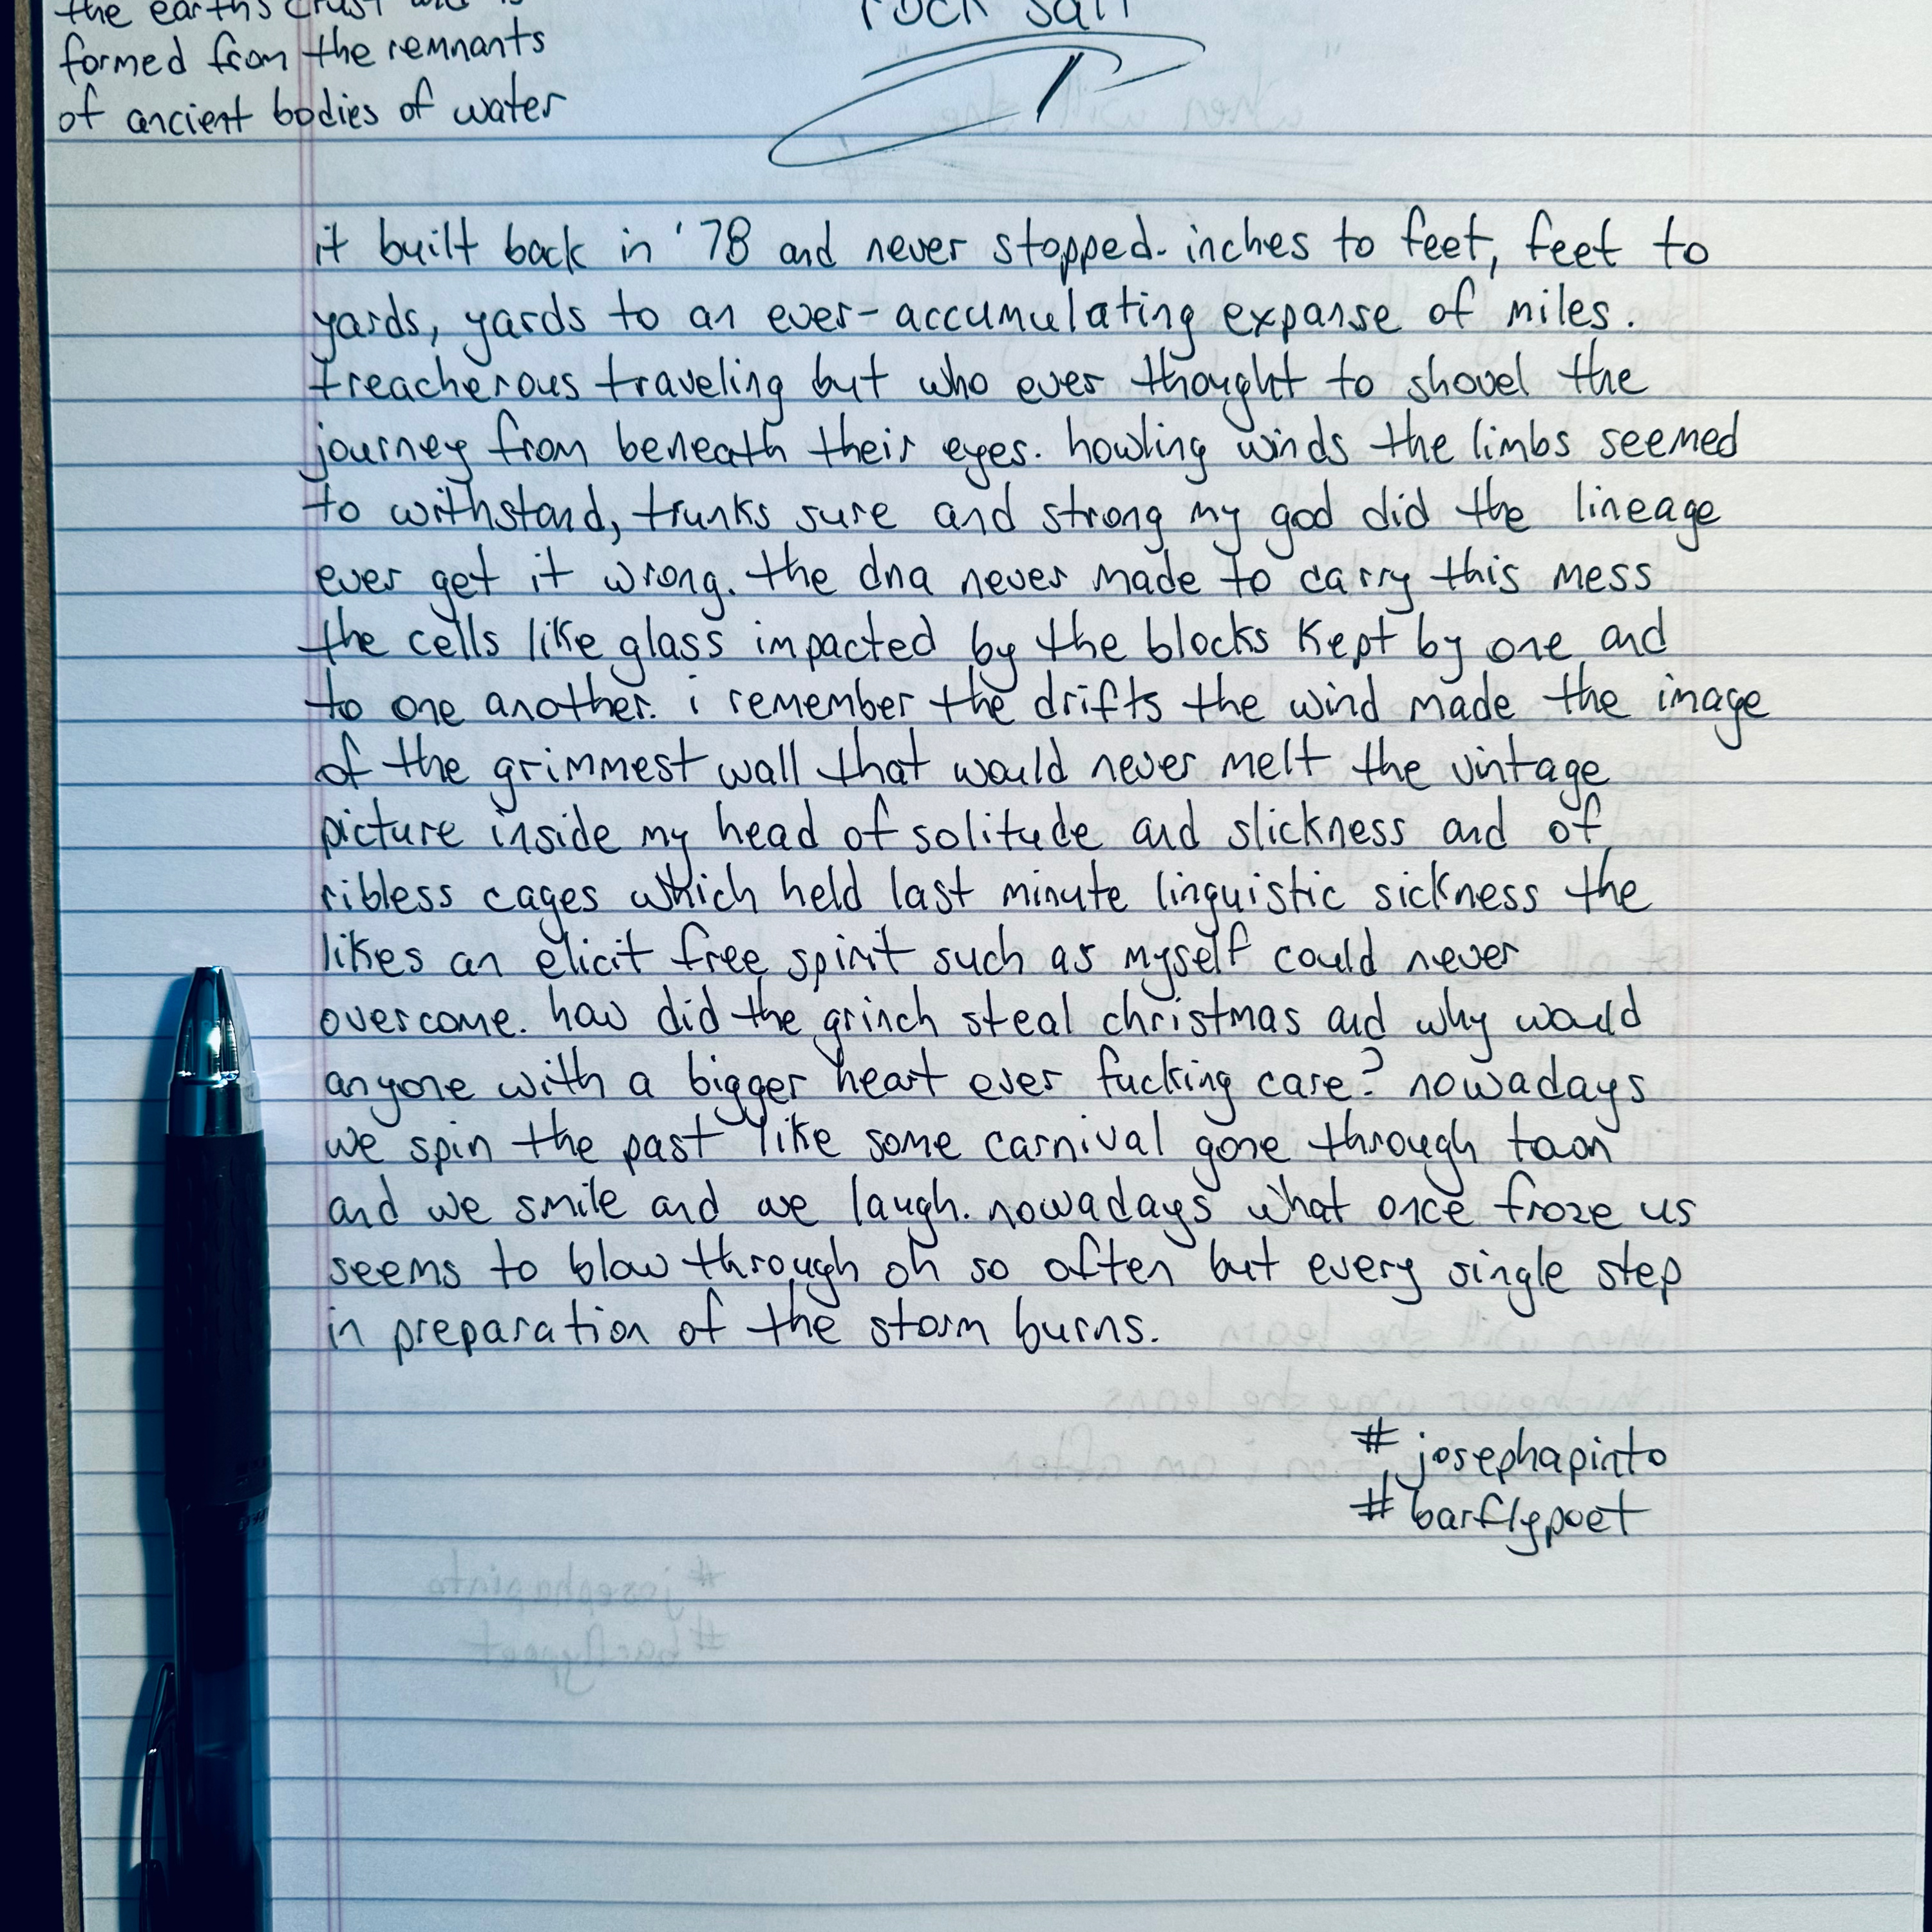 the earth's crust and is
formed from the remnants
of ancient bodies of water
rock salt
it built back in '78 and never stopped. inches to feet, feet to
yards, yards to an ever-accumulating expanse of miles.
treacherous traveling but who ever thought to shovel the
journey from beneath their eyes. howling winds the limbs seemed
to withstand, trunks sure and strong my god did the lineage
ever get it wrong. the dna never made to carry this mess
the cells like glass impacted by the blocks kept by one and
to one another. i remember the drifts the wind made the image
of the grimmest wall that would never melt the vintage
picture inside my head of solitude and slickness and of
ribless cages which held last minute linguistic sickness the
likes an elicit free spirit such as myself could never
overcome. how did the grinch steal christmas and why would
anyone with a bigger heart ever fucking care? nowadays
we spin the past like some carnival gone through town
and we smile and we laugh. nowadays what once froze us
seems to blow through oh so often but every single step
in preparation of the storm burns.
#josephapinto
#barflypoet